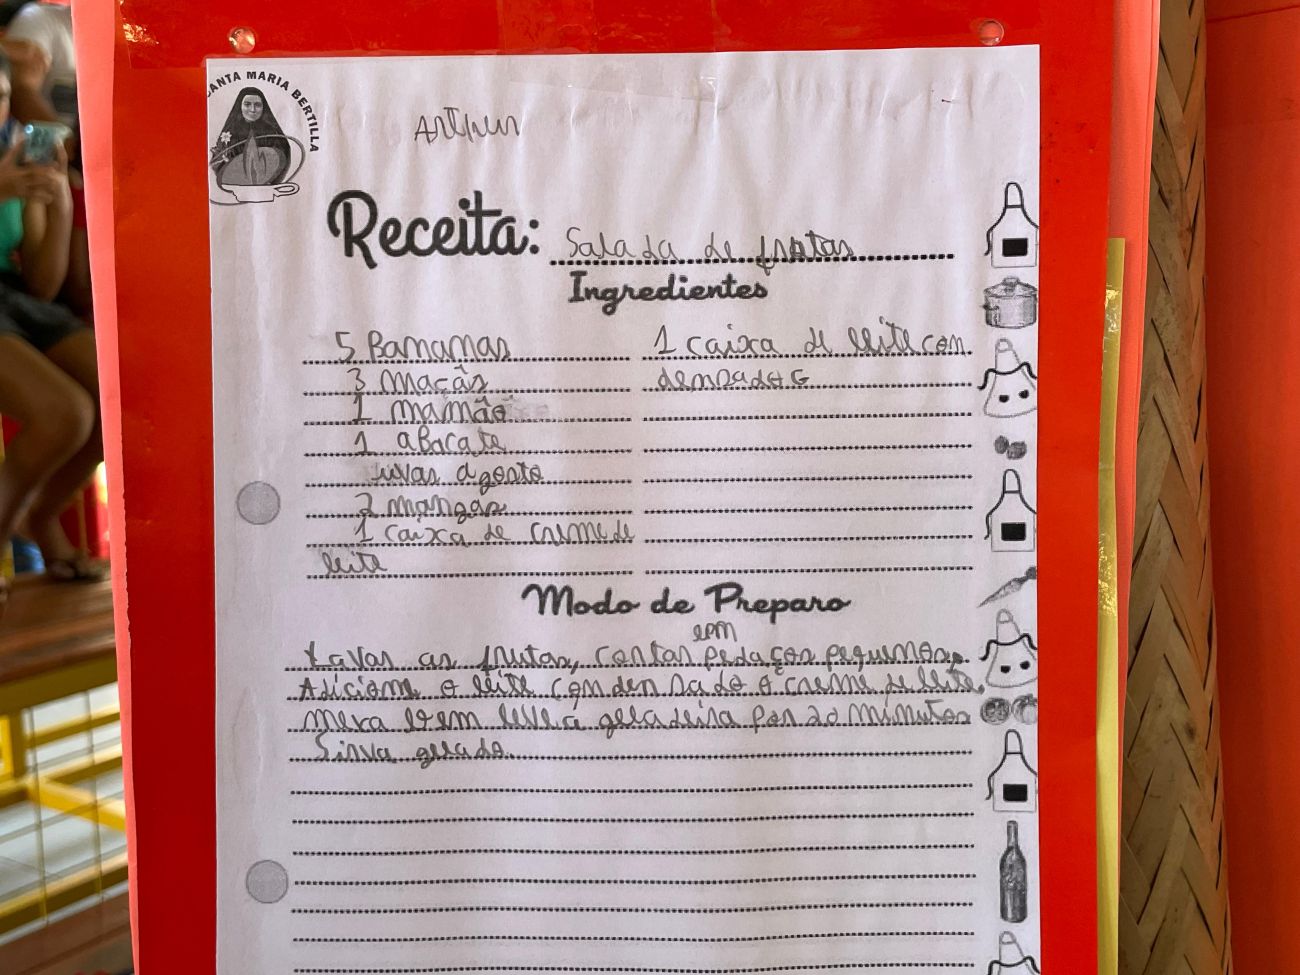 SANTA MARIA BERTILLA
Arthur
Receita: Salada de frutas
Ingredientes
5 Bananas
3 maçãs
1 mamão
1 abacate
uvas a gosto
2 mangas
1 caixa de creme de
leite
1 caixa de leite con
densado
Modo de Preparo
em
Lavar as frutas, cortar pedaços pequenos,
Adicione o leite condensado o creme de leite,
mexa bem leve a geladeira por 20 minutos
Sirva gelado.